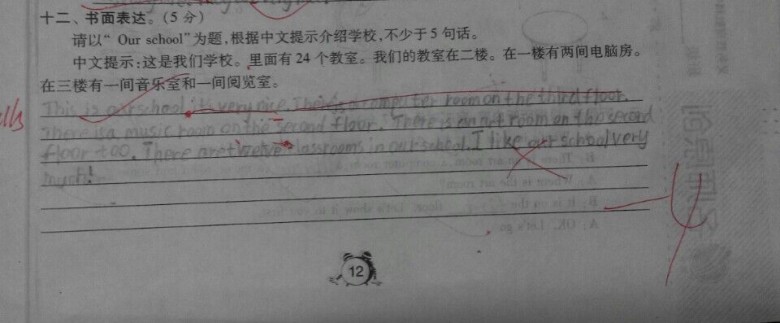 十二、书面表达。(5 分)
请以“ Our school”为题,根据中文提示介绍学校,不少于 5 句话。
中文提示:这是我们学校。里面有 24 个教室。我们的教室在二楼。在一楼有两间电脑房。
在三楼有一间音乐室和一间阅览室。
This is our school. It's very nice. There is a computer room on the third floor.
There is a music room on the second floor. There is an art room on the second
floor too. There are twelve classrooms in our school. I like our school very
much!
12